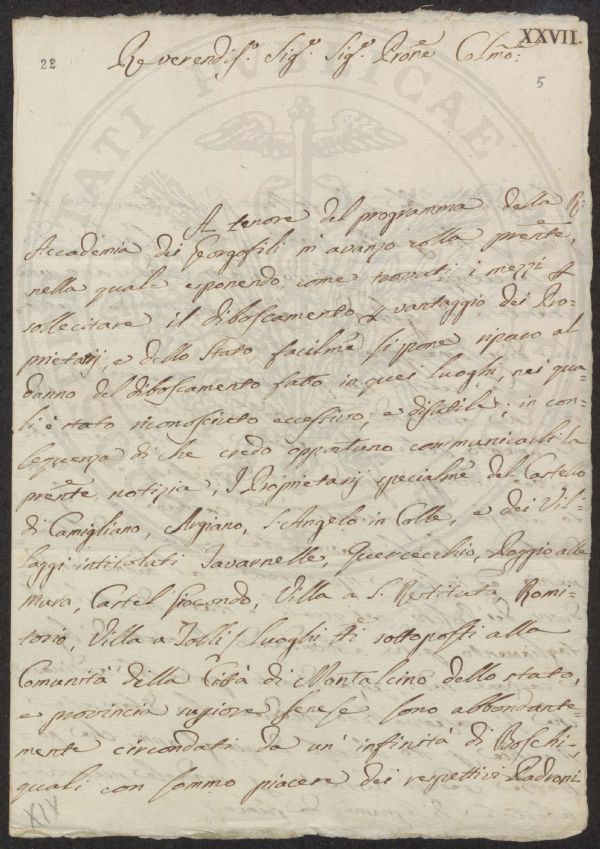 XXVII.
22
Reverendis.º Sig.r Sig.r Prone Colmo:
5
A tenore del programma della R:
Accademia dei Georgofili m'avanzo colla prente,
nella quale esponendo, come trovati i mezzi p
sollecitare il diboscamento p vantaggio dei Pro-
prietarj, e dello Stato, facilme si pone riparo al
danno del diboscamento fatto in quei luoghi, nei qua-
li è stato riconosciuto eccessivo, e disutile; in con-
seguenza di che credo opportuno communicarli la
prente notizia; I Proprietarj specialme del Castello
di Camigliano, Argiano, S. Angelo in Colle, e dei Vil-
laggi intitolati Tavarnelle, Quercecchio, Poggio alle
Mura, Castel Giocondo, Villa a S. Restituta, Romi-
torio, Villa a Tolli / Luoghi tti sottoposti alla
Comunità della Città di Montalcino dello stato,
e provincia supiore senese sono abbondante-
mente circondati da un' infinità di Boschi,
quali con sommo piacere dei respettivi Padroni
XIX